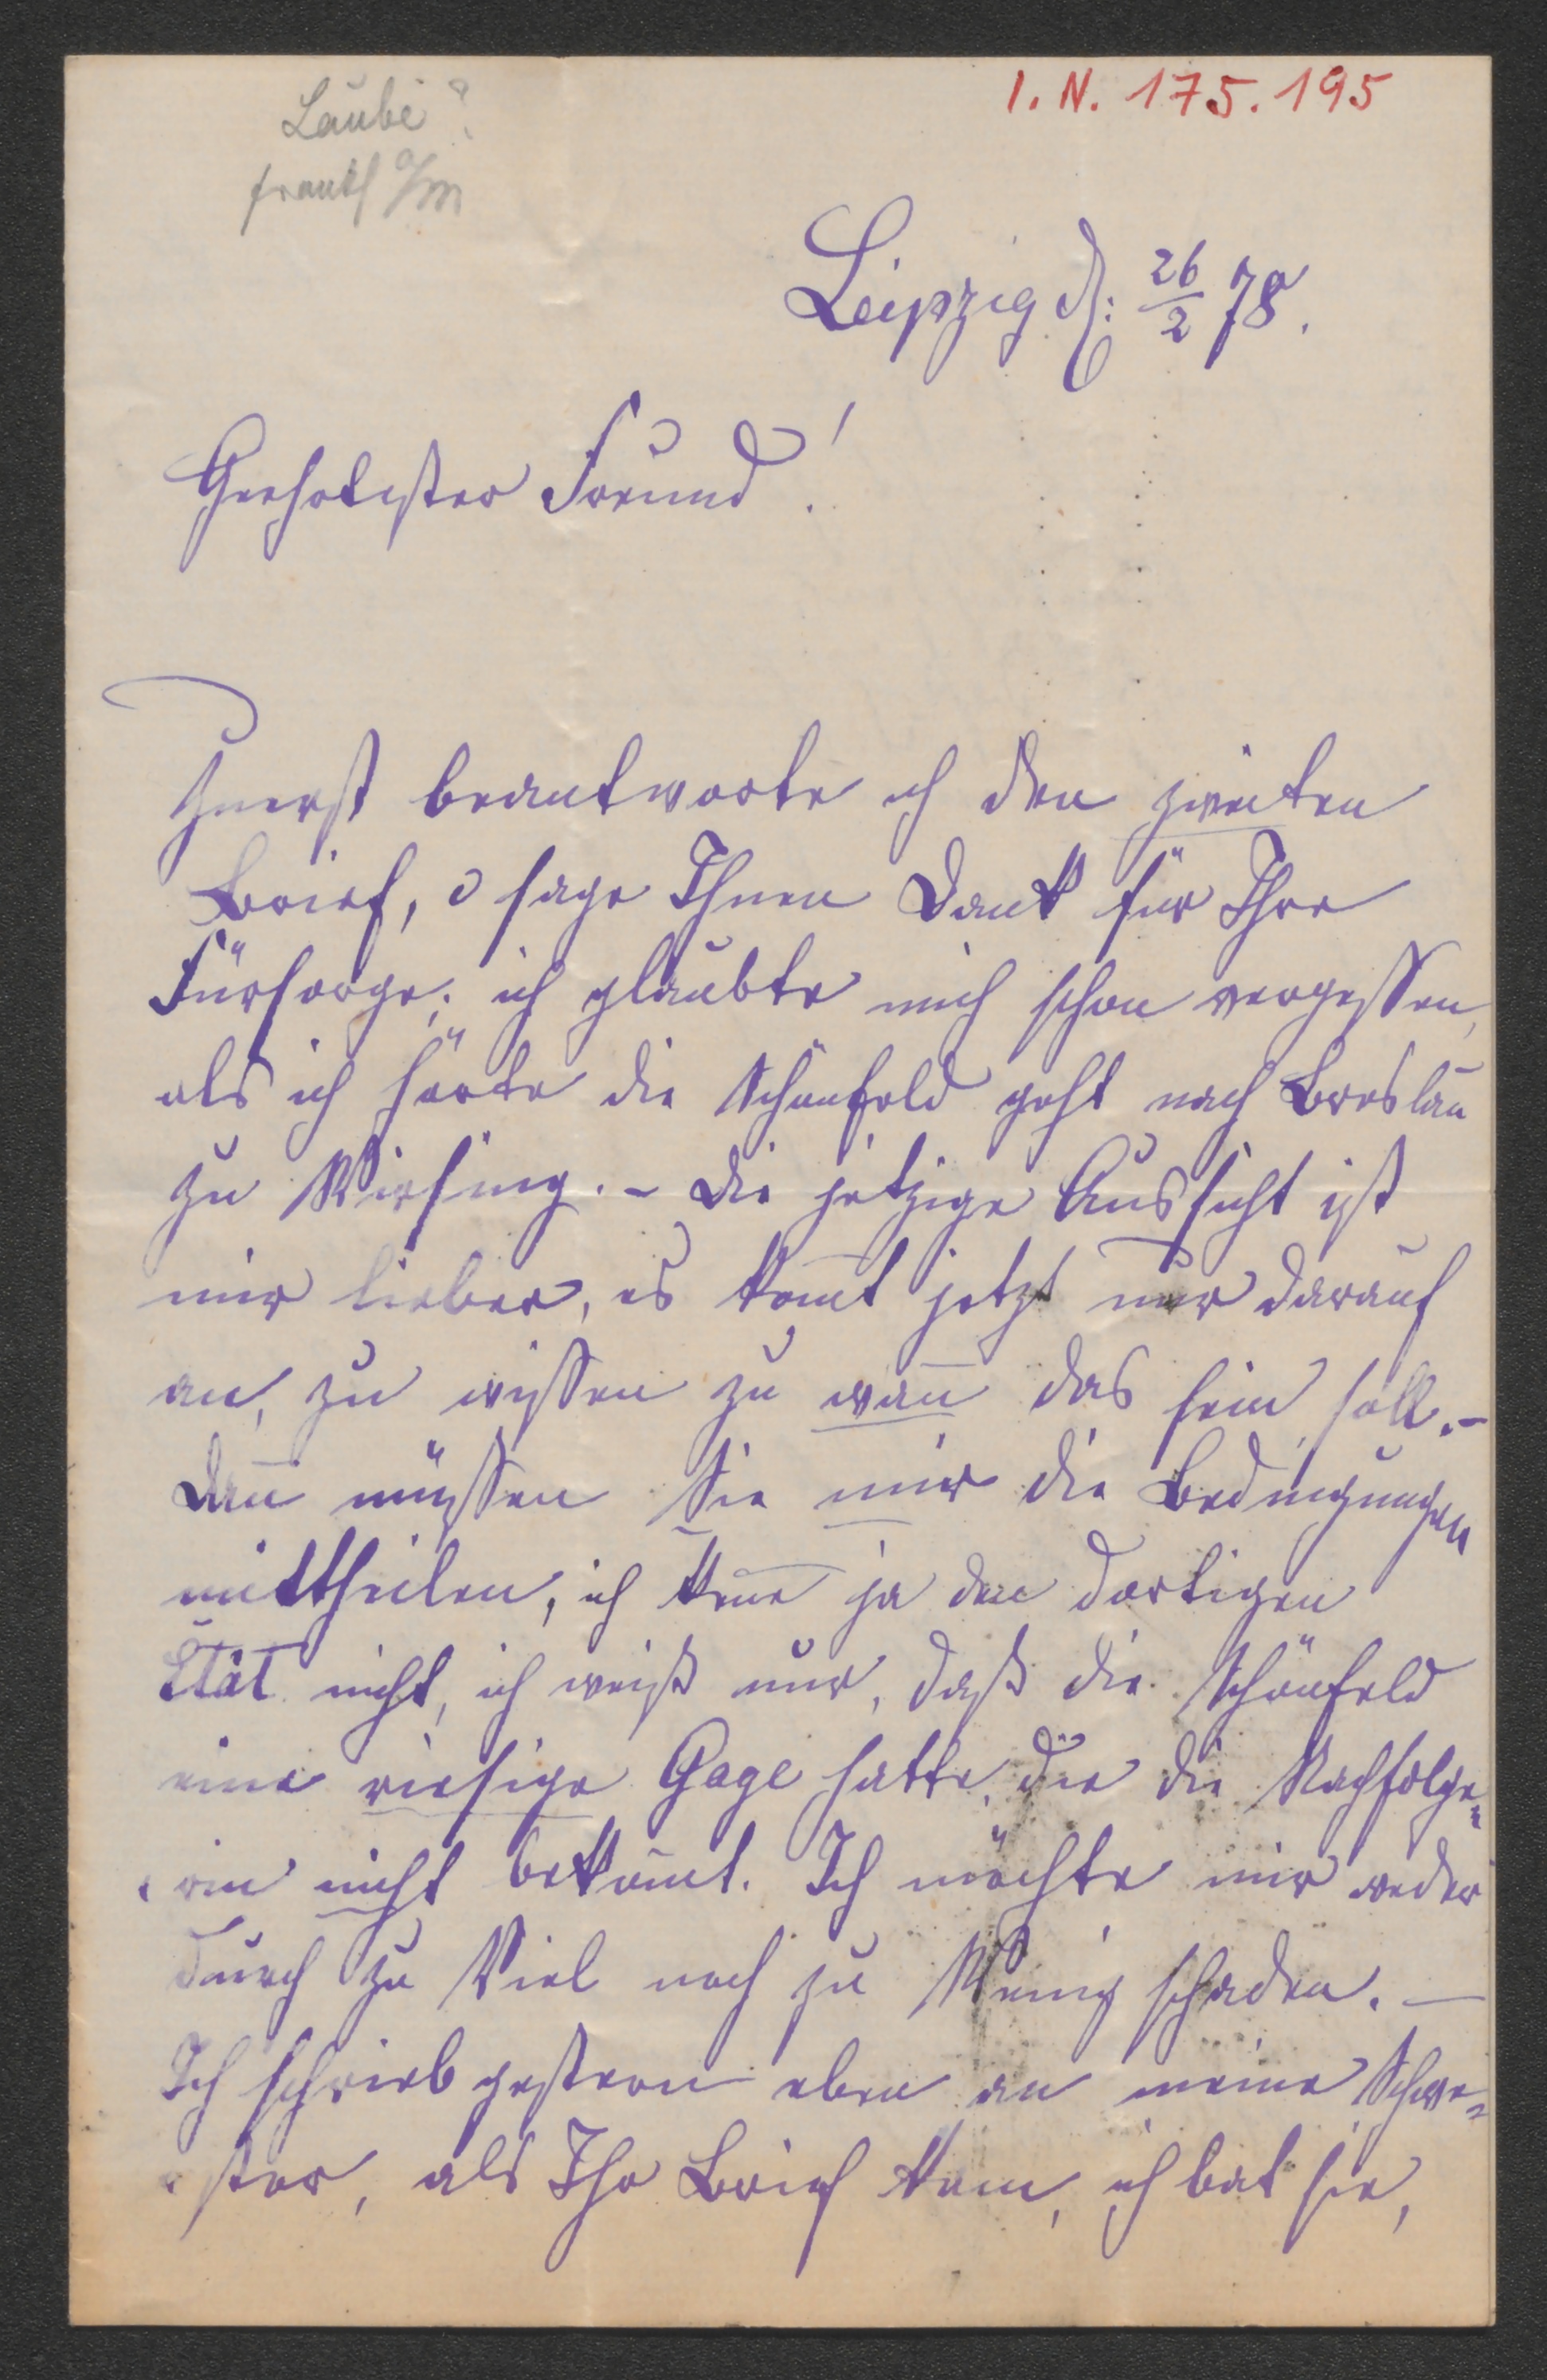 Laube?
Frankf a/m
I. N. 175.195
Leipzig d: 26/2 78.
Geehrtester Freund!
Zuerst beantworte ich den zweiten
Brief, u sage Ihnen Dank für Ihre
Fürsorge; ich glaubte mich schon vergessen,
als ich hörte die Schönfeld geht nach Breslau
zu Wirsing. – Die jetzige Aussicht ist
mir lieber, es kom̄t jetzt nur darauf
an, zu wissen zu wan̄ das sein soll. –
Dan̄ müssen Sie mir die Bedingungen
mittheilen, ich ken̄e ja den dortigen
Etât nicht, ich weiß nur, daß die Schönfeld
eine riesige Gage hatte, die die Nachfolge=
rin nicht bekom̄t. Ich möchte mir weder
durch zu Viel noch zu Wenig schaden. –
Ich schrieb gestern eben an meine Schwe=
ster, als Ihr Brief kam, ich bat sie,